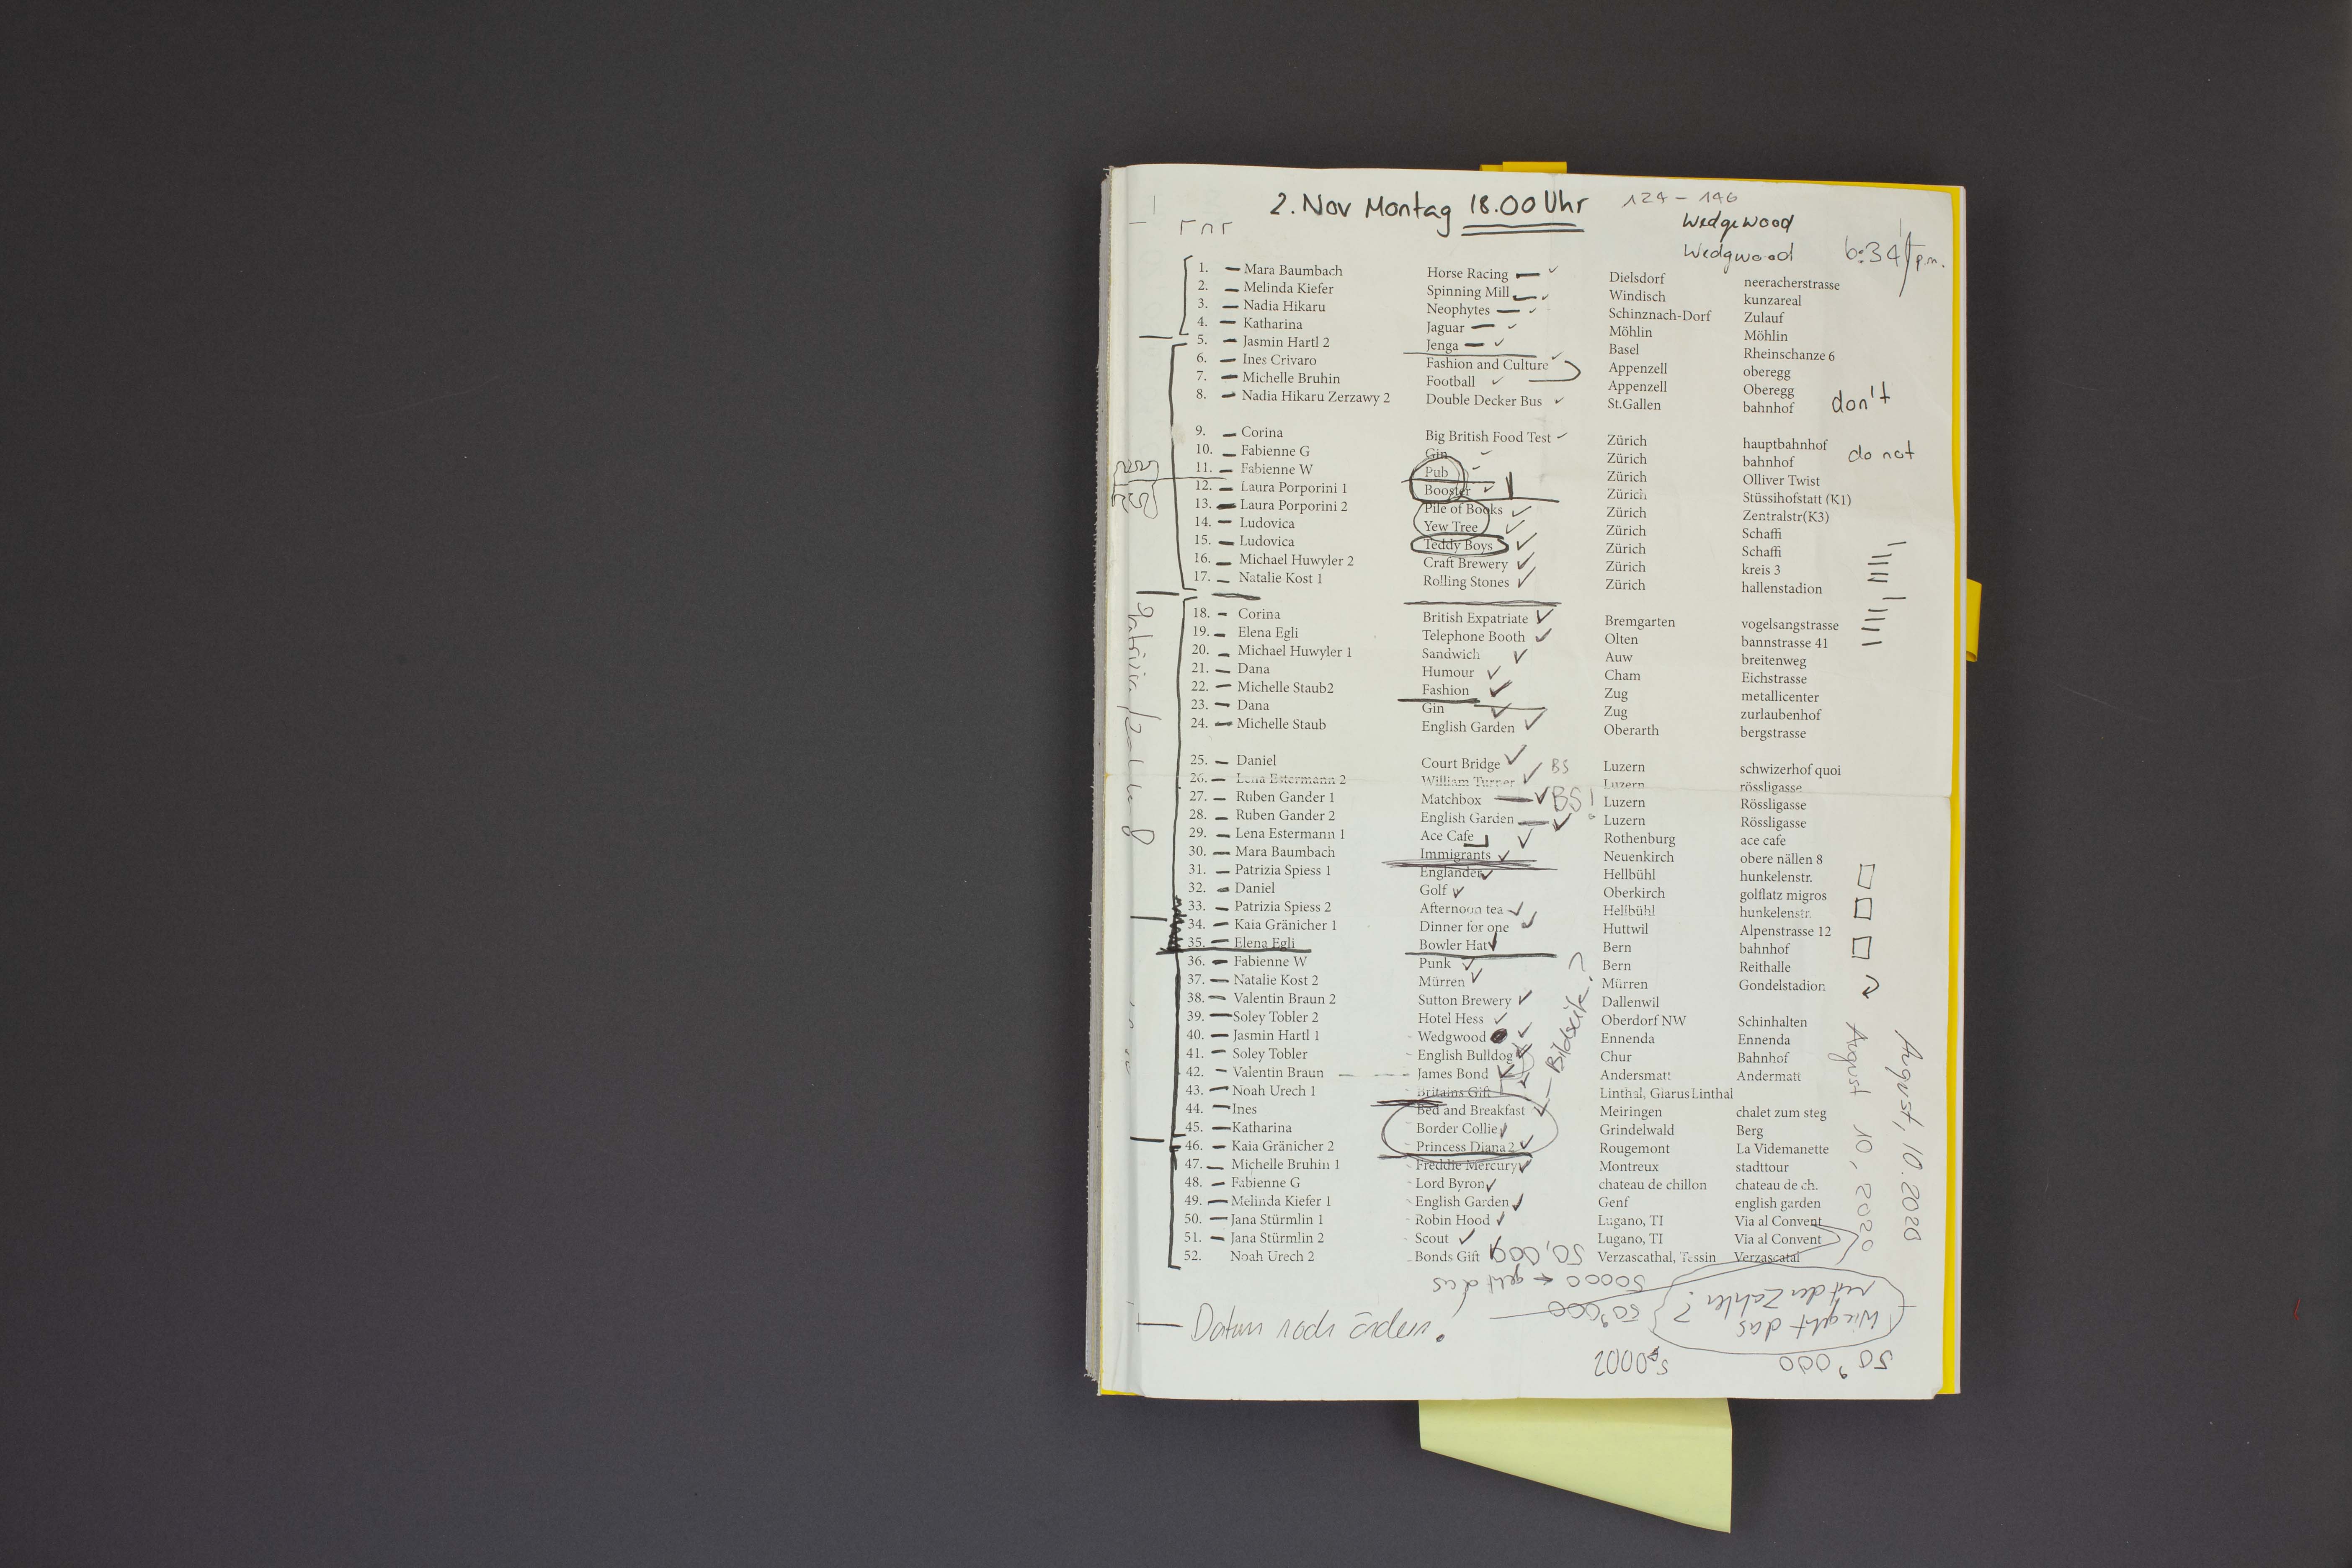 2. Nov Montag 18.00 Uhr 124 - 146
Wedgewood
Wedgwood 6:34 p.m.
1. Mara Baumbach Horse Racing Dielsdorf neeracherstrasse
2. Melinda Kiefer Spinning Mill Windisch kunzareal
3. Nadia Hikaru Neophytes Schinznach-Dorf Zulauf
4. Katharina Jaguar Möhlin Möhlin
5. Jasmin Hartl 2 Jenga Basel Rheinschanze 6
6. Ines Crivaro Fashion and Culture Appenzell oberegg
7. Michelle Bruhin Football Appenzell Oberegg
8. Nadia Hikaru Zerzawy 2 Double Decker Bus St.Gallen bahnhof
don't
9. Corina Big British Food Test Zürich hauptbahnhof
10. Fabienne G Gin Zürich bahnhof
do not
11. Fabienne W Pub Zürich Olliver Twist
12. Laura Porporini 1 Booster Zürich Stüssihofstatt (K1)
13. Laura Porporini 2 Pile of Books Zürich Zentralstr(K3)
14. Ludovica Yew Tree Zürich Schaffi
15. Ludovica Teddy Boys Zürich Schaffi
16. Michael Huwyler 2 Craft Brewery Zürich kreis 3
17. Natalie Kost 1 Rolling Stones Zürich hallenstadion
18. Corina British Expatriate Bremgarten vogelsangstrasse
19. Elena Egli Telephone Booth Olten bannstrasse 41
20. Michael Huwyler 1 Sandwich Auw breitenweg
21. Dana Humour Cham Eichstrasse
22. Michelle Staub2 Fashion Zug metallicenter
23. Dana Gin Zug zurlaubenhof
24. Michelle Staub English Garden Oberarth bergstrasse
25. Daniel Court Bridge Luzern schwizerhof quoi
BS
26. Lena Estermann 2 William Turner Luzern rössligasse
27. Ruben Gander 1 Matchbox Luzern Rössligasse
BS!
28. Ruben Gander 2 English Garden Luzern Rössligasse
29. Lena Estermann 1 Ace Cafe Rothenburg ace cafe
30. Mara Baumbach Immigrants Neuenkirch obere nällen 8
31. Patrizia Spiess 1 Engländer Hellbühl hunkelenstr.
32. Daniel Golf Oberkirch golflatz migros
33. Patrizia Spiess 2 Afternoon tea Hellbühl hunkelenstr.
34. Kaia Gränicher 1 Dinner for one Huttwil Alpenstrasse 12
35. Elena Egli Bowler Hat Bern bahnhof
36. Fabienne W Punk Bern Reithalle
37. Natalie Kost 2 Mürren Mürren Gondelstadion
38. Valentin Braun 2 Sutton Brewery Dallenwil
39. Soley Tobler 2 Hotel Hess Oberdorf NW Schinhalten
40. Jasmin Hartl 1 Wedgwood Ennenda Ennenda
41. Soley Tobler English Bulldog Chur Bahnhof
42. Valentin Braun James Bond Andersmatt Andermatt
43. Noah Urech 1 Britains Gift Linthal, Glarus Linthal
44. Ines Bed and Breakfast Meiringen chalet zum steg
45. Katharina Border Collie Grindelwald Berg
46. Kaia Gränicher 2 Princess Diana 2 Rougemont La Videmanette
47. Michelle Bruhin 1 Freddie Mercury Montreux stadttour
48. Fabienne G Lord Byron chateau de chillon chateau de ch.
49. Melinda Kiefer 1 English Garden Genf english garden
50. Jana Stürmlin 1 Robin Hood Lugano, TI Via al Convent
51. Jana Stürmlin 2 Scout Lugano, TI Via al Convent
52. Noah Urech 2 Bonds Gift Verzascathal, Tessin Verzascatal
Bildseite?
August 10, 2020
August, 10. 2020
50,000
50000 ← geht das
50'000
Wie geht das
mit den Zahlen?
50'000
Datum noch ändern.